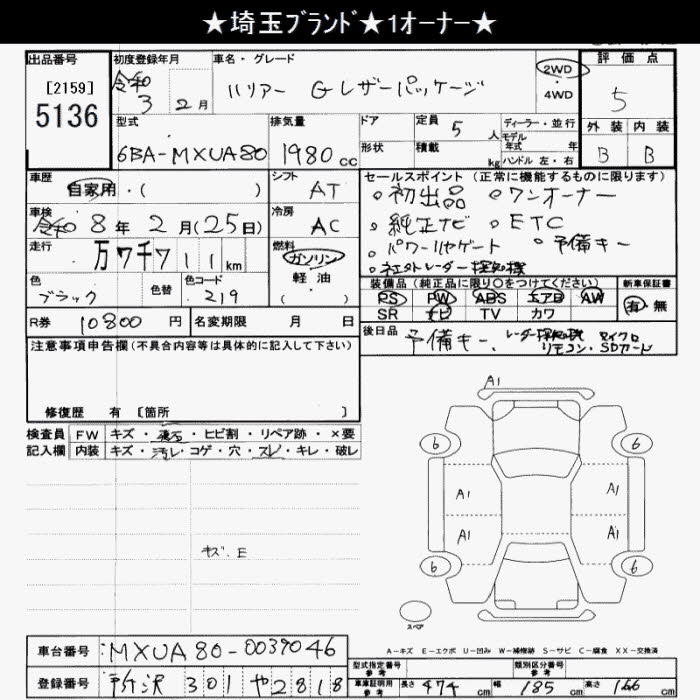 ★埼玉ブランド★1オーナー★
出品番号
[2159]
5136
初度登録年月
令和 3 2月
車名・グレード
ハリアー Gレザーパッケージ
2WD
・
4WD
評価点
5
外装 内装
B B
型式
6BA-MXUA80
排気量
1980 cc
ドア
形状
定員 5 人
積載 kg
ディーラー・並行
モデル
年式 年
ハンドル 左・右
車歴
自家用・( )
シフト
AT
車検
令和 8年 2月(25日)
冷房
AC
走行
万7千711km
燃料
ガソリン
軽油
( )
色
ブラック
色替
色コード
219
R券 10800 円
名変期限 月 日
セールスポイント(正常に機能するものに限ります)
◦初出品 ◦ワンオーナー
◦純正ナビ ◦ETC
◦パワーリヤゲート ◦予備キー
◦社外レーダー探知機
装備品(純正品に限り○をつけてください)
PS PW ABS エアB AW
SR ナビ TV カワ
新車保証書
有・無
後日品
予備キー、レーダー探知機 マイクロ
リモコン・SDカード
注意事項申告欄(不具合内容等は具体的に記入して下さい)
修復歴 有 [箇所 ]
検査員 FW キズ・飛石・ヒビ割・リペア跡・×要
記入欄 内装 キズ・汚レ・コゲ・穴・スレ・キレ・破レ
キズ.E
A1
6 6
A1 A1
A1 A1
6 6
スペア
A-キズ E-エクボ U-凹み W-補修跡 S-サビ C-腐食 XX-交換済
車台番号 MXUA80-0039046
登録番号 所沢 301 や 2818
型式指定番号
参考
類別区分番号
参考
車庫証明用
参考
長さ 474 cm 幅 185 cm 高さ 166 cm